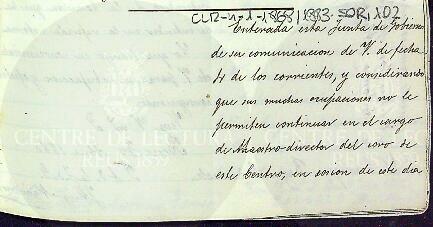 CLR-4-1-1868/1883.SOR,102
Enterada esta Junta de Gobierno
de su comunicacion de V. de fecha
4 de los corrientes, y considerando
que sus muchas ocupaciones no le
permiten continuar en el cargo
de Maestro-director del coro de
este Centro, en sesion de este dia
CENTRE DE LECTURA
REUS 1859